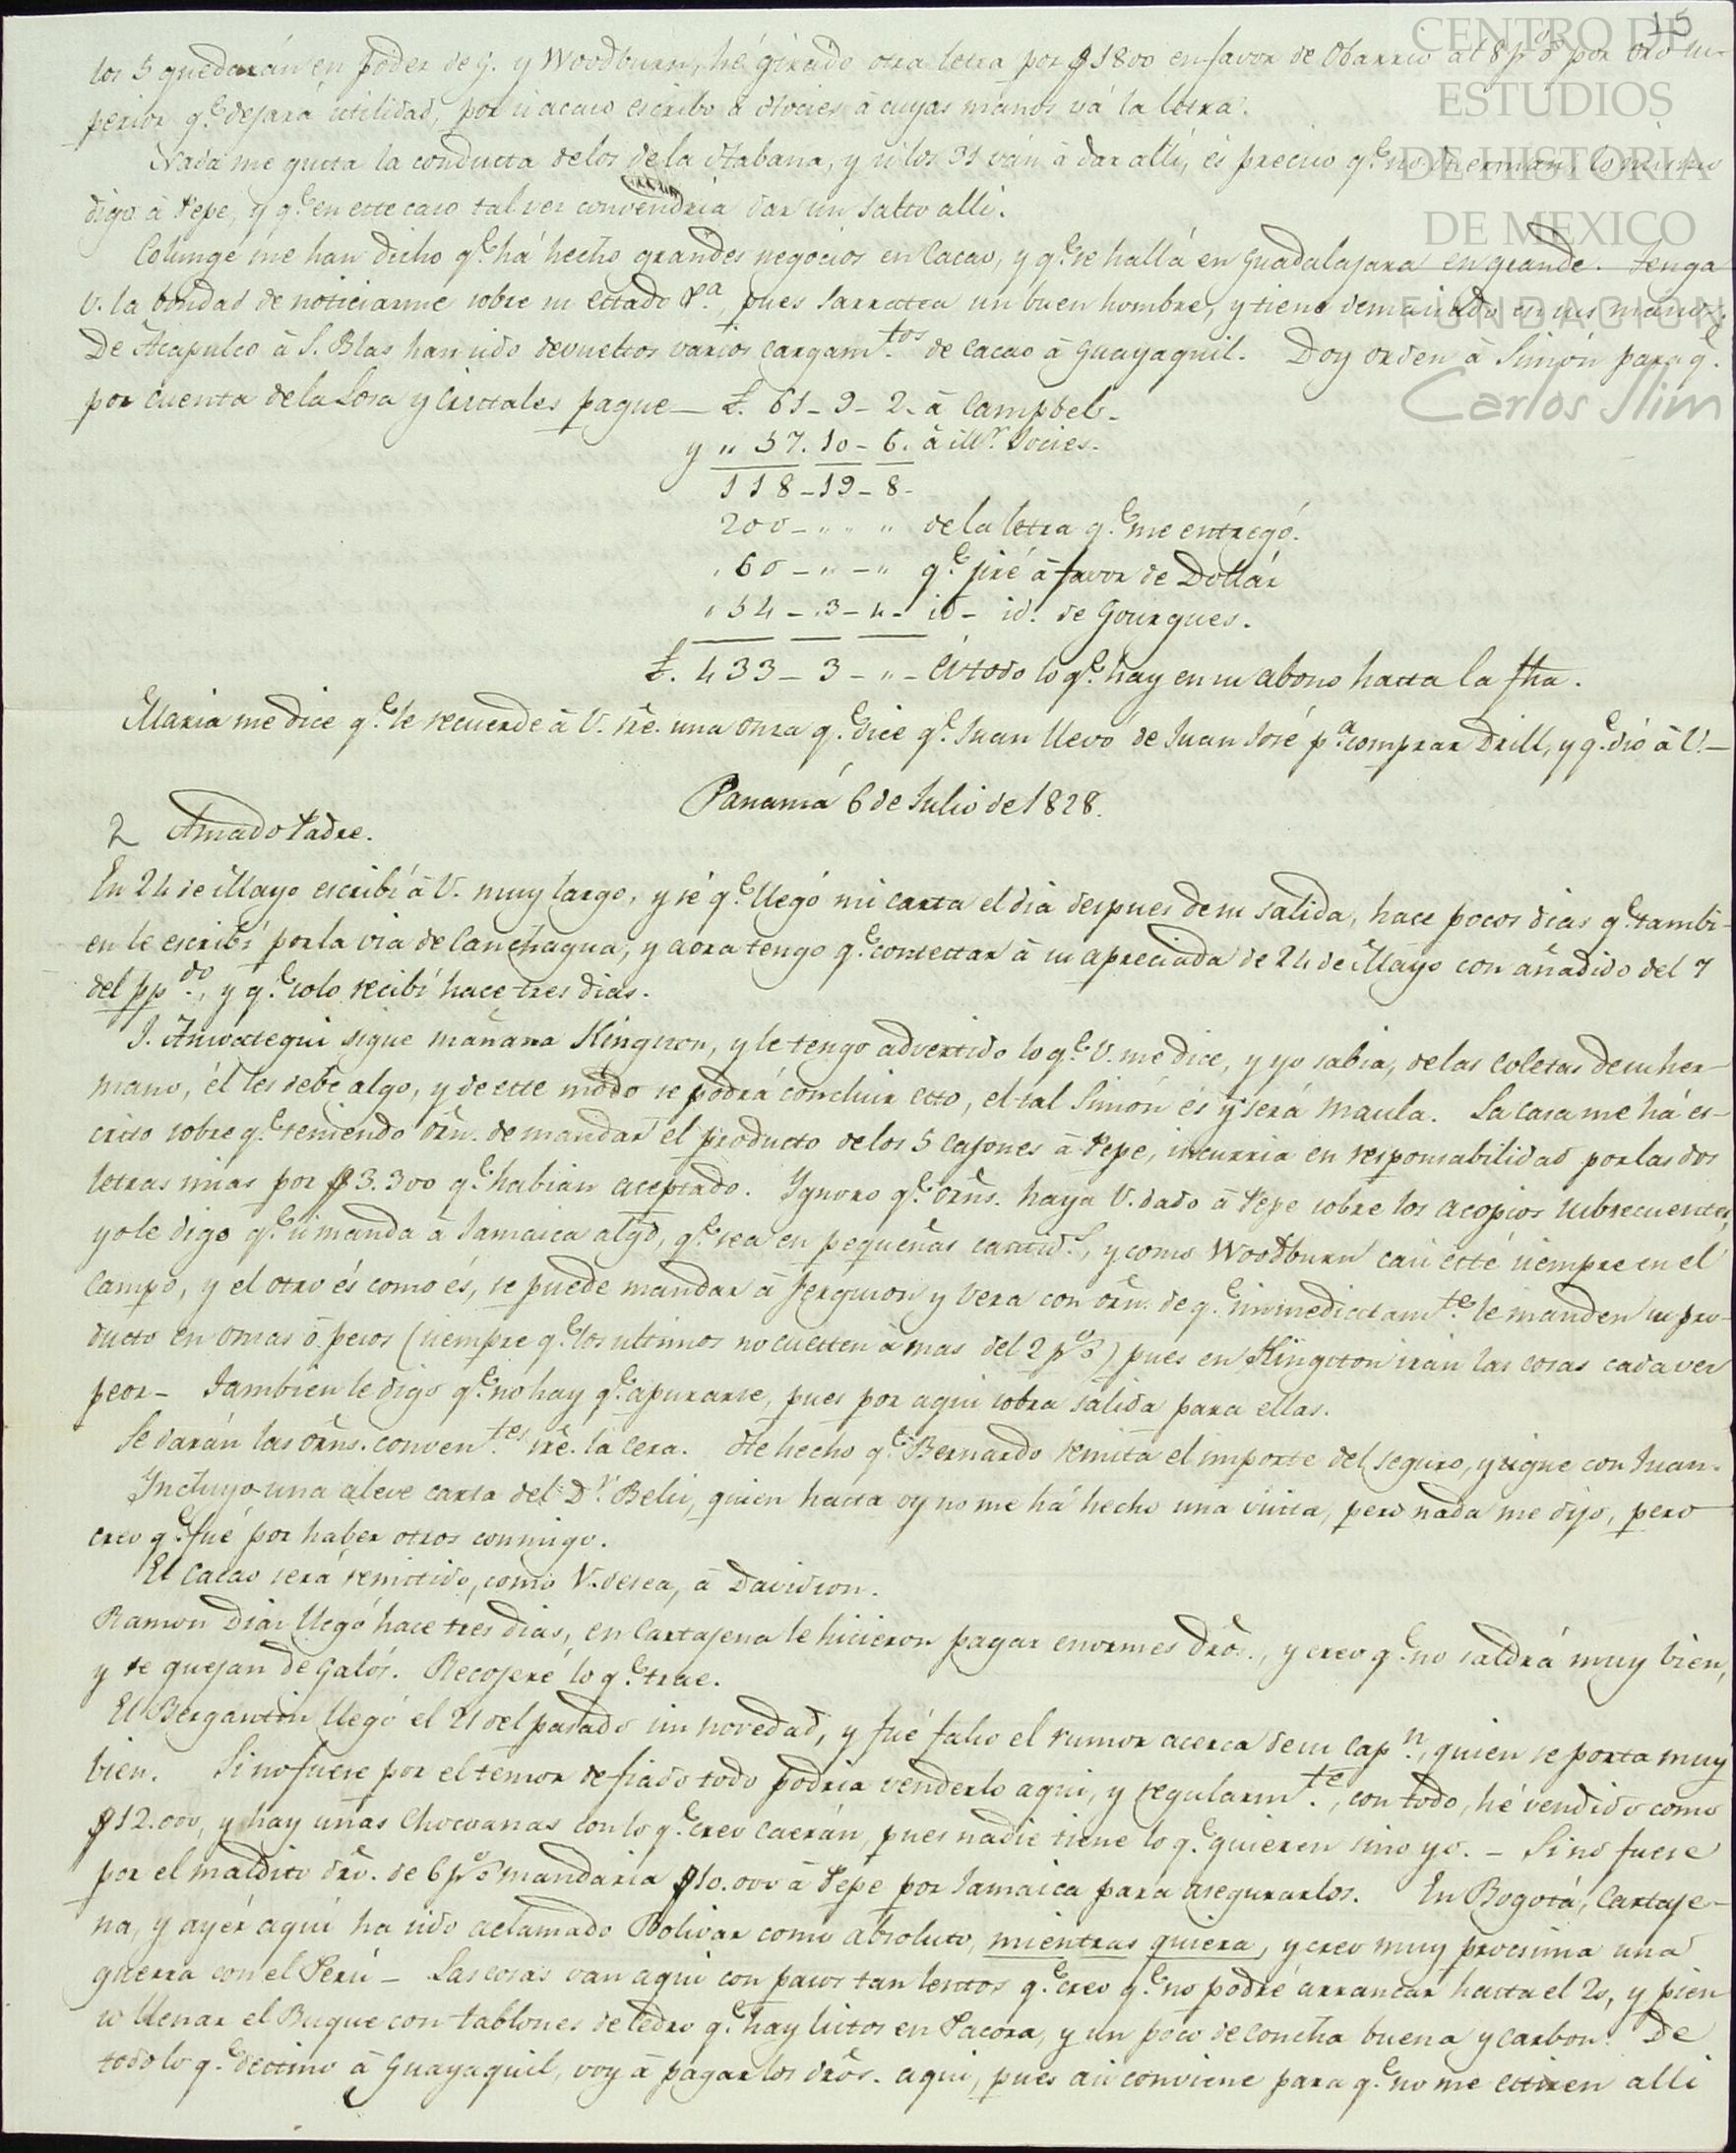 15
CENTRO DE
ESTUDIOS
DE HISTORIA
DE MEXICO
FUNDACION
Carlos Slim
los 5 quedarán en poder de G. y Woodburn, hé girado otra letra por $1800 en favor de Obarrio al 8 p% por oro su-
perior q.e dejará utilidad, por si acaso escribo á Hocies á cuyas manos vá la letra.
Nada me gusta la conducta de los de la Habana, y si los 31 ván á dar allí, és preciso q.e no duerman, lo mismo
digo á Pepe, y q.e en este caso tal vez convendria dar un salto alli.
Colunge me han dicho q.e há hecho grandes negocios en Cacao, y q.e se hallá en Guadalajara en grande. Tenga
V. la bondad de noticiarme sobre su estado &.a, pues Sarratea un buen hombre, y tiene demasiado en sus manos.
De Acapulco á S. Blas han sido devueltos varios cargam.tos de Cacao á Guayaquil. Doy orden á Simón para q.e
por cuenta de la Losa y Cristales pague — £. 61 - 9 - 2. á Campbel.
y " 57. 10 - 6. á Mr. Hocies.
118 - 19 - 8 -
200 - " " " de la letra q.e me entregó.
" 60 - " - " q.e jiré á favor de Dollár
" 54 - 3 - 4 - id - id. de Gourgues.
£. 433 - 3 - " - És todo lo q.e hay en su abono hasta la fha.
Maria me dice q.e le recuerde á V. sre. una onza q.e dice q.e Juan llevó de Juan José p.a comprar Drill, y q.e dió á V. —
Panamá 6 de Julio de 1828.
2 Amado Padre.
En 24 de Mayo escribí á V. muy largo, y sé q.e llegó mi carta el dia despues de su salida, hace pocos dias q.e tambi-
en le escribí por la via de Canchagua, y aora tengo q.e contestar á su apreciada de 24 de Mayo con añadido del 7
del pp.do, y q.e solo recibí hace tres dias.
J. Amoategui sigue mañana Kingston, y le tengo advertido lo q.e V. me dice, y yo sabia, de las coletas de su her-
mano, él les debe algo, y de este modo se podrá concluir esto, el tal Simón és y será maula. La casa me há es-
crito sobre q.e teniendo orñ. de mandar el producto de los 5 cajones á Pepe, incurria en responsabilidad por las dos
letras mias por $3.300 q.e habian aceptado. Ygnoro q.e orñs. haya V. dado á Pepe sobre los acopios subsecuentes,
yo le digo q.e si manda á Jamaica algo, q.e sea en pequeñas cantid.s, y como Woodburn casi esté siempre en el
Campo, y el otro és como és, se puede mandar á Ferguson y Vera con orñ. de q.e inmediatam.te le manden su pro-
ducto en onzas ó pesos (siempre q.e los ultimos no cuesten á mas del 2 p%) pues en Kingston irán las cosas cada vez
peor - Tambien le digo q.e no hay q.e apurarse, pues por aqui sobra salida para ellas.
Se darán las orñs. conven.tes sre. la cera. He hecho q.e Bernardo remita el importe del seguro, y sigue con Juan.
Incluyo una aleve carta del D.r Beliz, quien hasta oy no me há hecho una visita, pero nada me dijo, pero
creo q.e fué por haber otros conmigo.
El Cacao será remitido, como V. desea, á Davidson.
Ramon Diaz llegó hace tres dias, en Cartajena le hicieron pagar enormes drõs., y creo q.e no saldrá muy bien,
y se quejan de Galós. Recojeré lo q.e trae.
El Bergantin llegó el 21 del pasado sin novedad, y fué falso el rumor acerca de su Cap.n, quien se porta muy
bien. Si no fuese por el temor de fiado todo podria venderlo aqui, y regularm.te, con todo, hé vendido como
$12.000, y hay unas Chocoanas con lo q.e creo caerán, pues nadie tiene lo q.e quieren sino yo. - Si no fuese
por el maldito drõ. de 6 p% mandaria $10.000 á Pepe por Jamaica para asegurarlos. En Bogotá, Cartaje-
na, y ayér aqui ha sido aclamado Bolivar como absoluto, mientras quiera, y creo muy procsima una
guerra con el Perú - Las cosas van aqui con pasos tan lentos q.e creo q.e no podré arrancar hasta el 20, y pien
so llenar el Buque con tablones de Cedro q.e hay listos en Pacora, y un poco de concha buena y carbon. De
todo lo q.e destino á Guayaquil, voy á pagar los drõs. aqui, pues asi conviene para q.e no me estiren alli